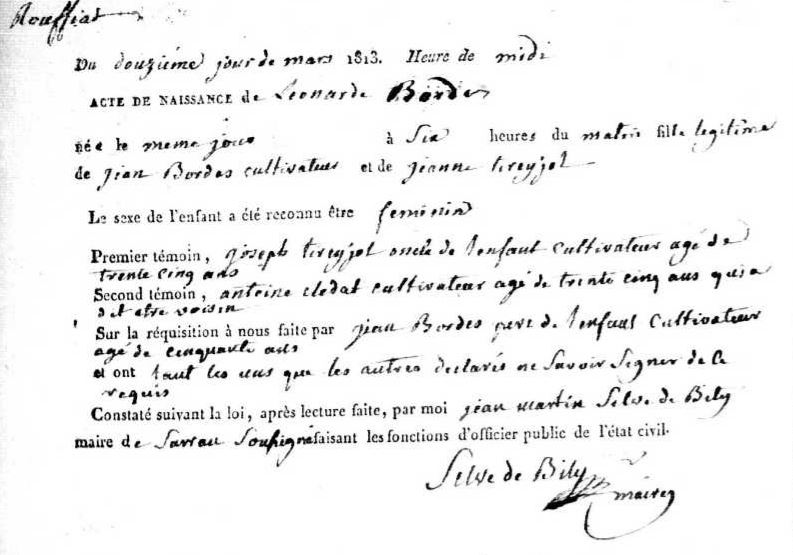 Rouffiat
Du douzième jour de mars 1813. Heure de midi
ACTE DE NAISSANCE de Leonarde Bordes
née le meme jour à Six heures du matin fille legitime
de jean Bordes cultivateur et de jeanne treyjol
Le sexe de l'enfant a été reconnu être feminin
Premier témoin, joseph treyjol oncle de lenfant cultivateur agé de
trente cinq ans
Second témoin, antoine cledat cultivateur agé de trente cinq ans qui a
dit etre voisin
Sur la réquisition à nous faite par jean Bordes pere de lenfant cultivateur
agé de cinquante ans
et ont tant les uns que les autres declarés ne Savoir Signer de ce
requis
Constaté suivant la loi, après lecture faite, par moi jean martin Selve de Bily
maire de Sarran Soussigné faisant les fonctions d'officier public de l'état civil.
Selve de Bily
maire